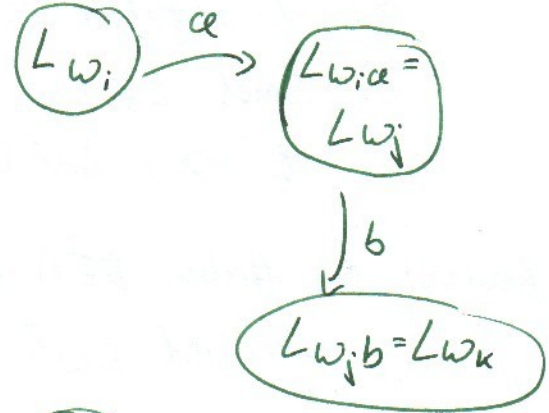 L w_i
a
L w_i a =
L w_j
b
L w_j b = L w_k